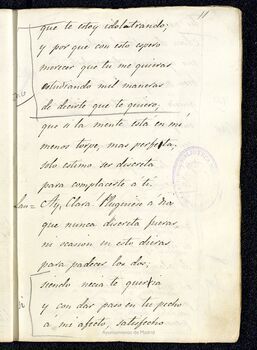 11
que te estoy idolatrando;
y por que con esto espero
merecer que tu me quieras
estudiando mil maneras
de decirte que te quiero,
que a la mente esta en mi
menos torpe, mas perfecta,
solo estimo ser discreta
para complacerte á ti.
Ay, Clara. Pluguiera a
que nunca discreta fueras,
ni ocasion en esto dieras
para padecer los dos;
siendo necia te queria
y con dar paso en tu pecho
a mi afecto, satisfecho
Ayuntamiento de Madrid